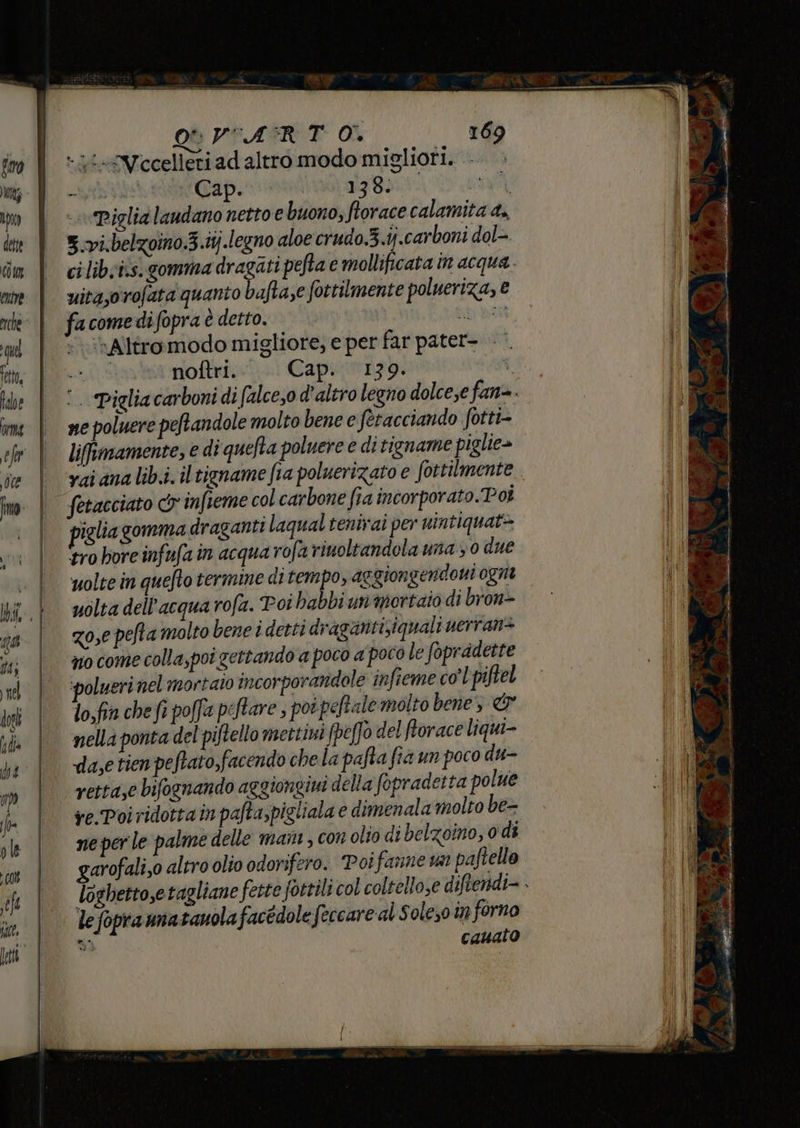 QVARTO. 169
Vccelleti ad altro modo migliori.
Cap. 138.
Piglia laudano netto e buono, ſtorace calamita a.
℥.vi.belzoino.℥.iij.legno aloe crudo.℥.ij.carboni dol-
ci lib.i.s. gomma dragati peſta e mollificata in acqua
uita,o roſata quanto baſta,e ſottilmente polueriza, e
fa come di ſopra è detto.
Altro modo migliore, e per far pater-
noſtri. Cap. 139.
Piglia carboni di ſalce,o d'altro legno dolce,e fan-
ne poluere peſtandole molto bene e ſetacciando ſotti-
liſſimamente, e di queſta poluere e di tigname piglie-
rai ana lib.i. il tigname ſia poluerizato e ſottilmente
ſetacciato & inſieme col carbone ſia incorporato.Poi
piglia gomma draganti laqual tenirai per uintiquat-
tro hore infuſa in acqua roſa riuoltandola una , o due
uolte in queſto termine di tempo, aggiongendoui ogni
uolta dell'acqua roſa. Poi habbi un mortaio di bron-
zo,e peſta molto bene i detti draganti,iquali uerran-
no come colla,poi gettando a poco a poco le ſopradette
polueri nel mortaio incorporandole inſieme co'l piſtel
lo,fin che ſi poſſa piſtare , poi peſtale molto bene, &
nella ponta del piſtello mettiui ſpeſſo del ſtorace liqui-
da,e tien peſtato,facendo che la paſta ſia un poco du-
retta,e biſognando aggiongiui della ſopradetta polue
re.Poi ridotta in paſta,pigliala e dimenala molto be-
ne per le palme delle mani , con olio di belzoino, o di
garofali,o altro olio odorifero. Poi fanne un paſtello
loghetto,e tagliane fette ſottili col coltello,e diſtendi-
le ſopra una tauola facēdole ſeccare al Sole,o in forno
cauato